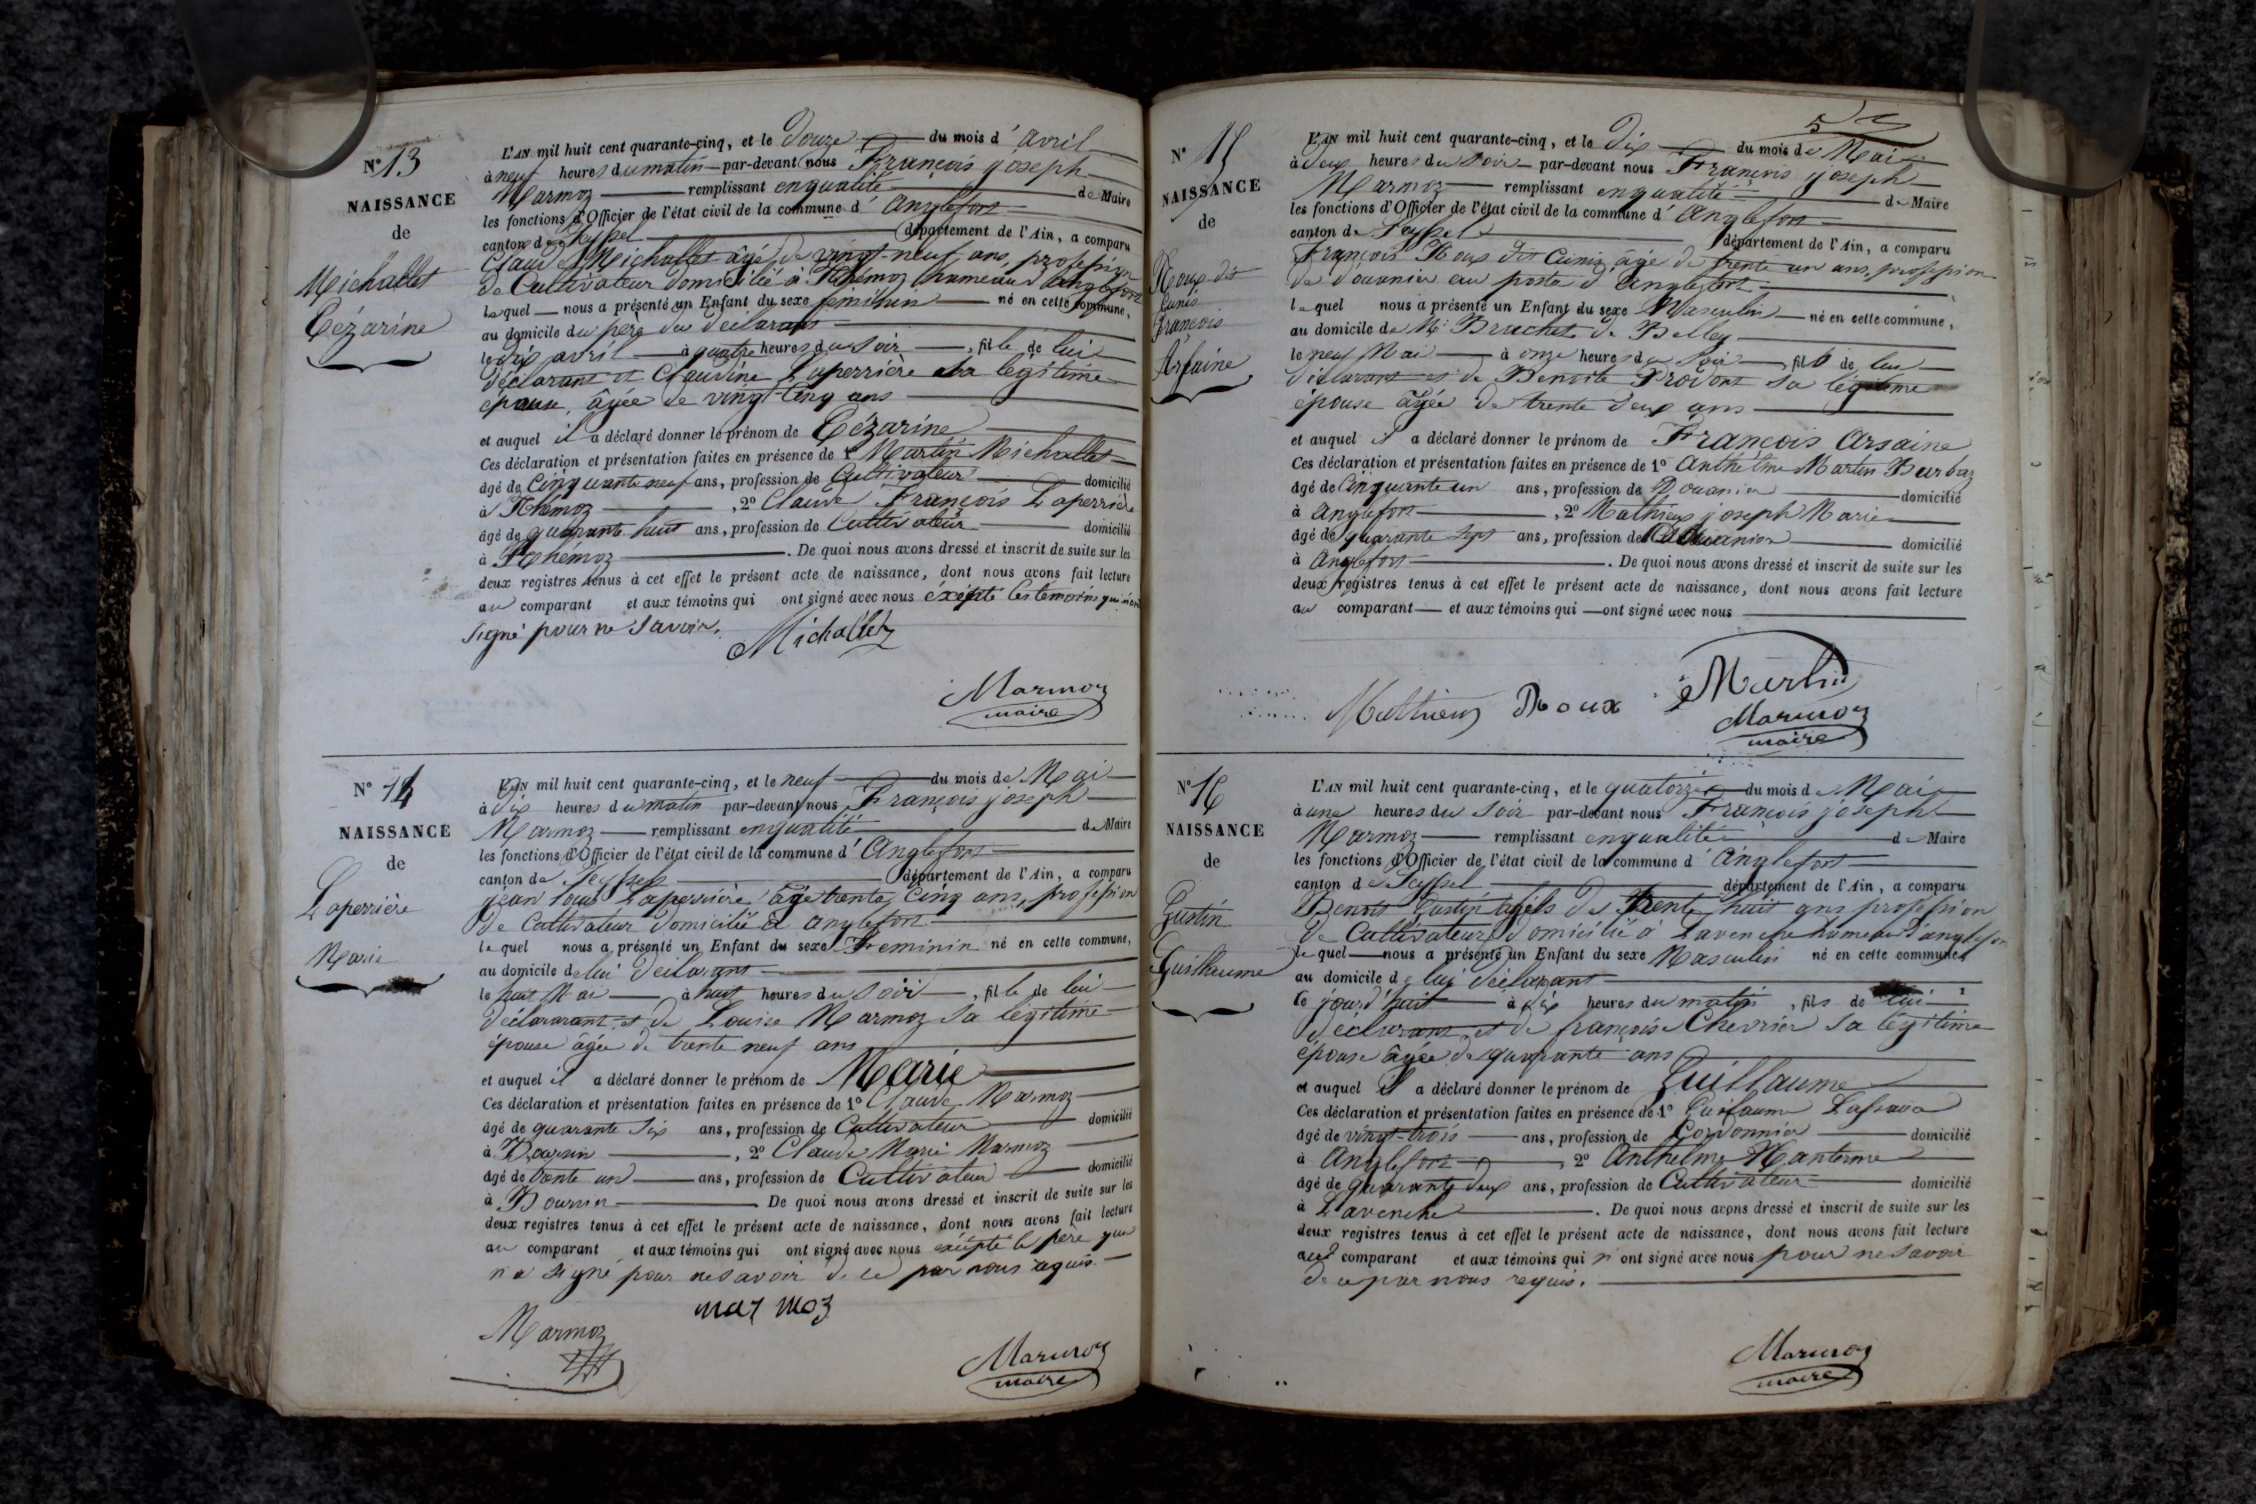 N° 13
NAISSANCE
de
Michallet
Cézarine
L'AN mil huit cent quarante-cinq, et le Douze du mois d'avril
à neuf heures du matin par-devant nous François joseph
Marmoz remplissant enqualité de Maire
les fonctions d'Officier de l'état civil de la commune d'anglefort
canton de Seyssel département de l'Ain, a comparu
Claude Michallet âgé de vingt-neuf ans, profession
de Cultivateur domicilié à hameau d'anglefort
lequel nous a présenté un Enfant du sexe feminin né en cette commune,
au domicile du père du déclarant
le dix avril à quatre heures du soir, fille de lui
déclarant et Claudine Laperrière sa légitime
épouse, âgée de vingt-cinq ans
et auquel il a déclaré donner le prénom de Cézarine
Ces déclaration et présentation faites en présence de 1° Martin Michallet
âgé de Cinquante neuf ans, profession de Cultivateur domicilié
à, 2° Claude François Laperrière
âgé de quarante huit ans, profession de Cultivateur domicilié
à. De quoi nous avons dressé et inscrit de suite sur les
deux registres tenus à cet effet le présent acte de naissance, dont nous avons fait lecture
au comparant et aux témoins qui ont signé avec nous éxépté les temoins qui n'ont
signé pour ne savoir.
Michallet
Marmoz
maire
N° 14
NAISSANCE
de
Laperrière
Marie
L'AN mil huit cent quarante-cinq, et le neuf du mois de Mai
à Dix heures du matin par-devant nous François joseph
Marmoz remplissant enqualité de Maire
les fonctions d'Officier de l'état civil de la commune d'Anglefort
canton de Seyssel département de l'Ain, a comparu
jean Louis Laperrière âgé trente cinq ans, profession
de Cultivateur domicilié à anglefort
lequel nous a présenté un Enfant du sexe Feminin né en cette commune,
au domicile de lui déclarant
le huit Mai à huit heures du soir, fille de lui
déclararant et de Louise Marmoz sa légitime
épouse âgée de trente neuf ans
et auquel il a déclaré donner le prénom de Marie
Ces déclaration et présentation faites en présence de 1° Claude Marmoz
âgé de quarante six ans, profession de Cultivateur domicilié
à, 2° Claude Marie Marmoz
âgé de trente un ans, profession de Cultivateur domicilié
à. De quoi nous avons dressé et inscrit de suite sur les
deux registres tenus à cet effet le présent acte de naissance, dont nous avons fait lecture
au comparant et aux témoins qui ont signé avec nous éxépté le père qui
n'a signé pour ne savoir de ce par nous requis.
Marmoz
mar moz
Marmoz
maire
N° 15
NAISSANCE
de
Roux dit
Cunis
François
Arsaine
L'AN mil huit cent quarante-cinq, et le dix du mois de Mai
à deux heures du soir par-devant nous François joseph
Marmoz remplissant enqualité de Maire
les fonctions d'Officier de l'état civil de la commune d'Anglefort
canton de Seyssel département de l'Ain, a comparu
François Roux dit Cunis âgé de trente un ans, profession
de douanier au poste d'anglefort
lequel nous a présenté un Enfant du sexe Masculin né en cette commune,
au domicile de Mr Bruchet de Belley
le neuf Mai à onze heures du soir, fils de lui
déclarant et de Benoite Prodont sa légitime
épouse âgée de trente deux ans
et auquel il a déclaré donner le prénom de François Arsaine
Ces déclaration et présentation faites en présence de 1° Anthelme Martin Burbaz
âgé de Cinquante un ans, profession de Douanier domicilié
à anglefort, 2° Mathieux joseph Marie
âgé de quarante sept ans, profession de Douanier domicilié
à anglefort. De quoi nous avons dressé et inscrit de suite sur les
deux registres tenus à cet effet le présent acte de naissance, dont nous avons fait lecture
au comparant et aux témoins qui ont signé avec nous
Mathieux Roux Martin
Marmoz
maire
N° 16
NAISSANCE
de
Gustin
Guillaume
L'AN mil huit cent quarante-cinq, et le quatorze du mois de Mai
à une heures du soir par-devant nous François joseph
Marmoz remplissant enqualité de Maire
les fonctions d'Officier de l'état civil de la commune d'anglefort
canton de Seyssel département de l'Ain, a comparu
Benoit Gustin âgés de trente huit ans profession
de Cultivateur domicilié à Lavenche hameau d'anglefort
lequel nous a présenté un Enfant du sexe Masculin né en cette commune,
au domicile de lui déclarant
le jourd'huit à dix heures du matin, fils de lui
déclarant et de françoise Chevrier sa légitime
épouse âgée de quarante ans
et auquel il a déclaré donner le prénom de Guillaume
Ces déclaration et présentation faites en présence de 1° Guilaume
âgé de vingt-trois ans, profession de Cordonnier domicilié
à Anglefort, 2° Anthelme Manterme
âgé de quarante deux ans, profession de Cultivateur domicilié
à Lavenche. De quoi nous avons dressé et inscrit de suite sur les
deux registres tenus à cet effet le présent acte de naissance, dont nous avons fait lecture
aux comparant et aux témoins qui n'ont signé avec nous pour ne savoir
de ce par nous requis.
Marmoz
maire